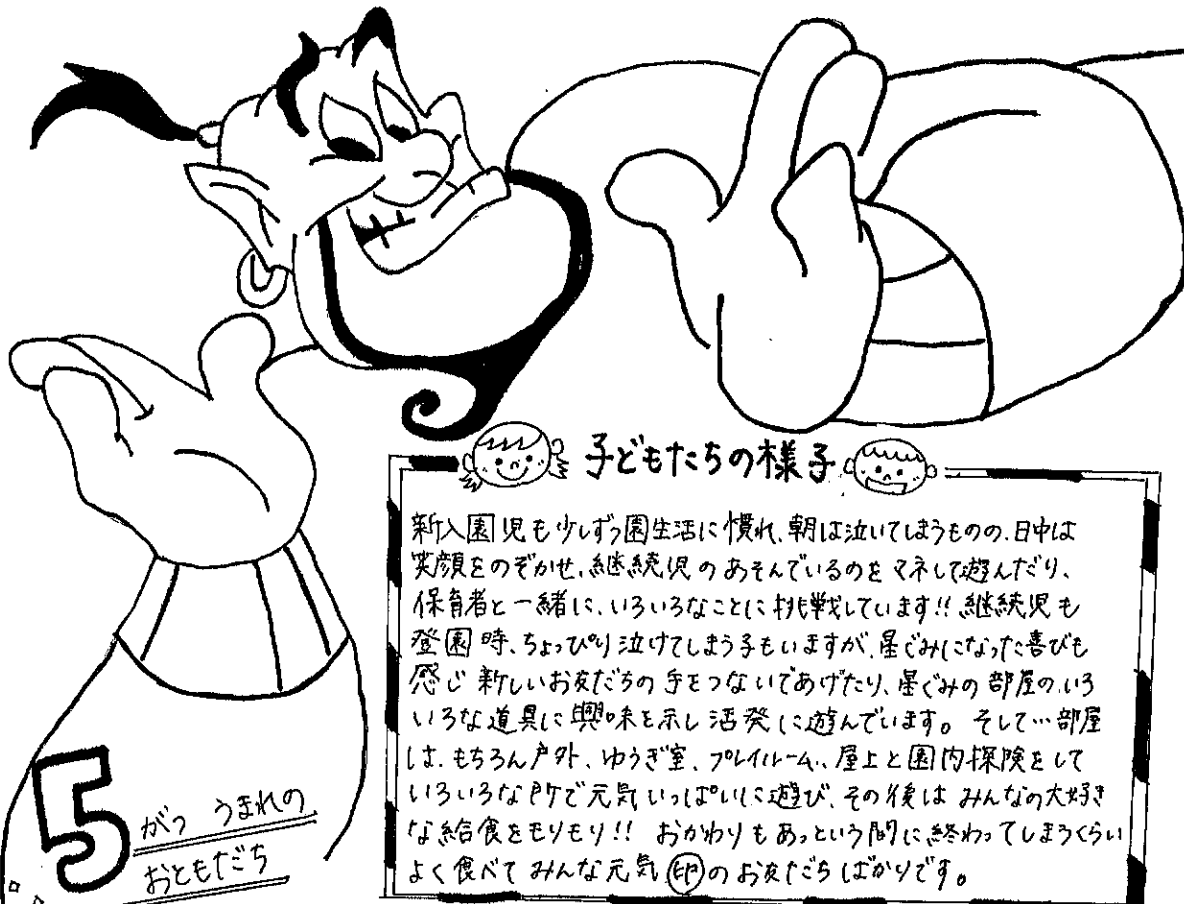 子どもたちの様子
新入園児も少しずつ園生活に慣れ、朝は泣いてしまうものの、日中は
笑顔をのぞかせ、継続児のあそんでいるのをマネして遊んだり、
保育者と一緒に、いろいろなことに挑戦しています!! 継続児も
登園時、ちょっぴり泣けてしまう子もいますが、星ぐみになった喜びも
感じ新しいお友だちの手をつないであげたり、星ぐみの部屋のいろ
いろな道具に興味を示し活発に遊んでいます。そして…部屋
は、もちろん戸外、ゆうぎ室、プレイルーム、屋上と園内探険をして
いろいろな所で元気いっぱいに遊び、その後はみんなの大好き
な給食をもりもり!! おかわりもあっという間に終わってしまうくらい
よく食べてみんな元気印のお友だちばかりです。
5がつ うまれの
おともだち